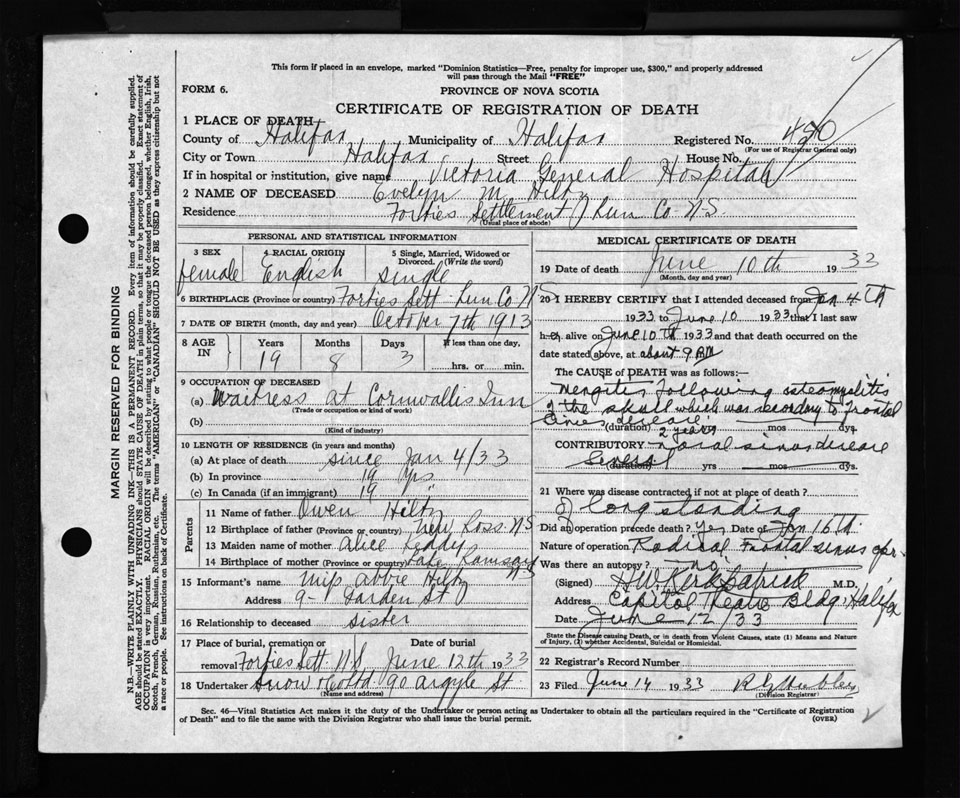 This form if placed in an envelope, marked "Dominion Statistics—Free, penalty for improper use, $300," and properly addressed
will pass through the Mail "FREE"
FORM 6.
PROVINCE OF NOVA SCOTIA
CERTIFICATE OF REGISTRATION OF DEATH
1 PLACE OF DEATH
County of Halifax Municipality of Halifax Registered No. 450
(For use of Registrar General only)
City or Town Halifax Street House No.
If in hospital or institution, give name Victoria General Hospital
2 NAME OF DECEASED Evelyn M. Hiltz
Residence Forties Settlement Lun Co. N.S.
(Usual place of abode)
PERSONAL AND STATISTICAL INFORMATION
3 SEX 4 RACIAL ORIGIN 5 Single, Married, Widowed or Divorced. (Write the word)
female English single
6 BIRTHPLACE (Province or country) Forties Sett. Lun Co NS
7 DATE OF BIRTH (month, day and year) October 7th 1913
8 AGE IN Years Months Days If less than one day,
19 8 3 hrs. or min.
9 OCCUPATION OF DECEASED
(a) Waitress at Cornwallis Inn
(Trade or occupation or kind of work)
(b)
(Kind of industry)
10 LENGTH OF RESIDENCE (in years and months)
(a) At place of death since Jan 4/33
(b) In province 19 yrs.
(c) In Canada (if an immigrant) 19
Parents
11 Name of father Owen Hiltz
12 Birthplace of father (Province or country) New Ross. N.S
13 Maiden name of mother Alice Reddy
14 Birthplace of mother (Province or country) Lake Ramsay N.S
15 Informant's name Miss Abbie Hiltz
Address 9- Garden St
16 Relationship to deceased sister
17 Place of burial, cremation or removal Forties Sett. N.S. Date of burial June 12th 1933
18 Undertaker Snow & Co Ltd 90 Argyle St.
(Name and address)
MEDICAL CERTIFICATE OF DEATH
19 Date of death June 10th 1933
(Month, day and year)
20 I HEREBY CERTIFY that I attended deceased from Jan 4th
1933 to June 10 1933 that I last saw
her alive on June 10th 1933 and that death occurred on the
date stated above, at about 9 P.M
The CAUSE of DEATH was as follows:—
Mengitis following osteomyelitis
of the skull which was secondary to frontal
sinus disease.
(duration) 2 years mos dys.
CONTRIBUTORY Nasal sinus disease
(duration) yrs mos dys.
21 Where was disease contracted if not at place of death?
of long standing
Did an operation precede death? Yes Date of Jan 16th.
Nature of operation Radical Frontal sinus oper-
Was there an autopsy? No
(Signed) H.W. Kirkpatrick M.D.,
Address Capitol Theatre Bldg, Halifax
Date June 12/33
State the Disease causing Death, or in death from Violent Causes, state (1) Means and Nature
of Injury, (2) whether Accidental, Suicidal or Homicidal.
22 Registrar's Record Number
23 Filed June 14 1933
(Division Registrar)
Sec. 46—Vital Statistics Act makes it the duty of the Undertaker or person acting as Undertaker to obtain all the particulars required in the "Certificate of Registration
of Death" and to file the same with the Division Registrar who shall issue the burial permit.
(OVER)
2
MARGIN RESERVED FOR BINDING
N.B.—WRITE PLAINLY WITH UNFADING INK—THIS IS A PERMANENT RECORD. Every item of information should be carefully supplied.
AGE should be stated EXACTLY. PHYSICIANS should STATE CAUSE OF DEATH in plain terms, so that it may be properly classified. Exact statement of
OCCUPATION is very important. RACIAL ORIGIN will be described by stating to what people or tongue the deceased person belonged, whether English, Irish,
Scotch, French, German, Russian, Ruthenian, etc. The terms "AMERICAN" or "CANADIAN" SHOULD NOT BE USED as they express citizenship but not
a race or people. See instructions on back of Certificate.